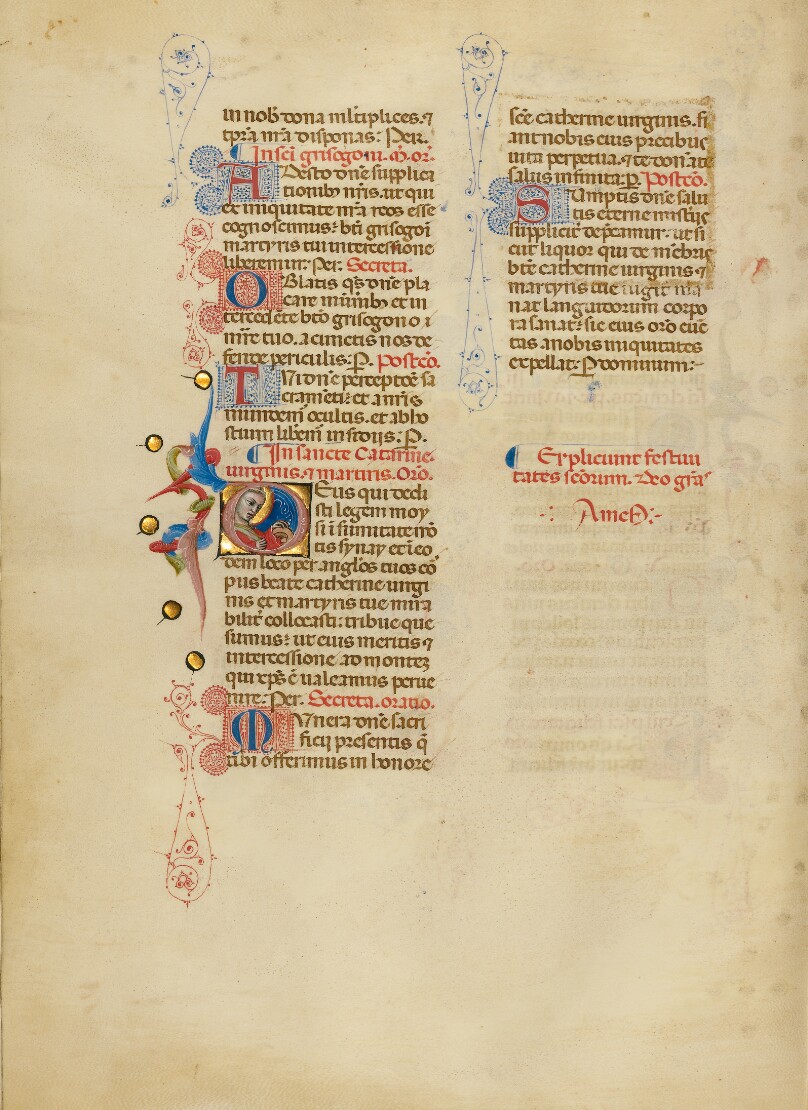 in nob dona mltiplices. ⁊
tpra nra disponas: Per.
In sci grisogoni. m. or.
Adesto dne supplica
tionib nris. ut qui
ex iniquitate nra reos esse
cognoscimus: bti grisogoi
martyris tui intercessione
liberemur: Per. Secreta.
Oblatis qs dne pla
care munib et in
tercedete bto grisogono
mre tuo. a cunctis nos de
fende periculis: P. Postco.
Tui dne perceptoe sa
crameti: et a nris
mundem occultis. et ab ho
stium liberem insidiis: P.
In sancte Catarine
uirginis. ⁊ martiris. Oro.
Deus qui dedi
sti legem moy
si i sumitate mo
tis synay et i eo
dem loco per anglos tuos co
pus beate catherine uirgi
nis et martyris tue mira
bilit collocasti: tribue que
sumus: ut eius meritis ⁊
intercessione ad montez
qui xps e ualeamus perue
nire: Per. Secreta. oratio.
Munera dne sacri
ficij presentis q
tibi offerimus in honore
sce catherine uirginis. fi
ant nobis eius precibus
uita perpetua. ⁊ te donante
salus infinita: P. Postco.
Sumptis dne salu
tis eterne misteriis
supplicit depcamur. ut si
cut liquor qui de mebris
bte catherine uirginis ⁊
martyris tue iugit ma
nat languidorum corpo
ra sanat: sic eius oro cuc
tas a nobis iniquitates
expellat: P dominum:-
Explicunt festiui
tates scorum. Deo gra
Amen:-